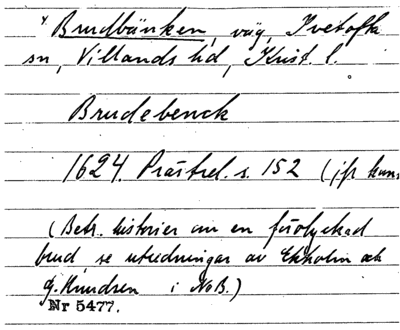 * Brudbänken, väg, Ivetofta
sn, Villands hd, Krist. l.
Brudebenck
1624. Prästrel. s. 152 (jfr
(Betr. historier om en förolyckad
brud se utredningar av Ekholm och
G. Knudsen i NoB.)
Nr 5477.